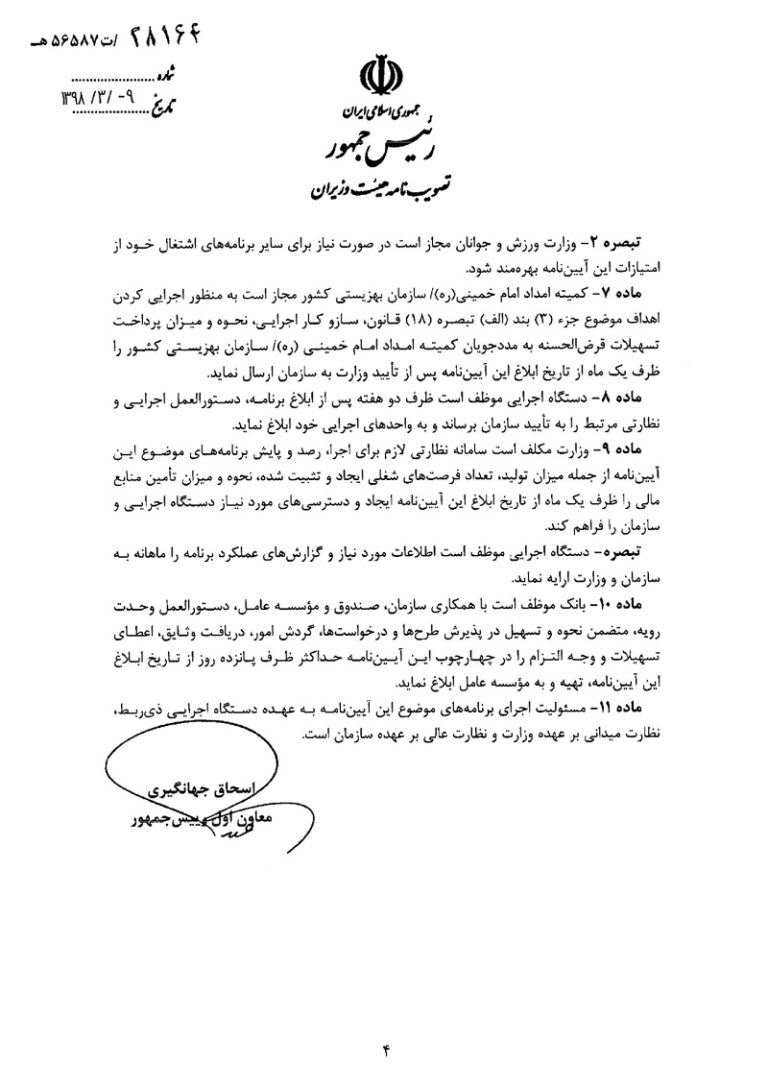 ۲۸۱۶۴ /ت۵۶۵۸۷هـ
شماره ......................
تاریخ ۱۳۹۸/۳/۰۹
جمهوری اسلامی ایران
رئیس جمهور
تصویب نامه هیئت وزیران
تبصره ۲- وزارت ورزش و جوانان مجاز است در صورت نیاز برای سایر برنامه‌های اشتغال خود از
امتیازات این آیین‌نامه بهره‌مند شود.
ماده ۷- کمیته امداد امام خمینی(ره)/ سازمان بهزیستی کشور مجاز است به منظور اجرایی کردن
اهداف موضوع جزء (۳) بند (الف) تبصره (۱۸) قانون، سازو کار اجرایی، نحوه و میزان پرداخت
تسهیلات قرض‌الحسنه به مددجویان کمیته امداد امام خمینی (ره)/ سازمان بهزیستی کشور را
ظرف یک ماه از تاریخ ابلاغ این آیین‌نامه پس از تأیید وزارت به سازمان ارسال نماید.
ماده ۸- دستگاه اجرایی موظف است ظرف دو هفته پس از ابلاغ برنامه، دستورالعمل اجرایی و
نظارتی مرتبط را به تأیید سازمان برساند و به واحدهای اجرایی خود ابلاغ نماید.
ماده ۹- وزارت مکلف است سامانه نظارتی لازم برای اجرا، رصد و پایش برنامه‌های موضوع این
آیین‌نامه از جمله میزان تولید، تعداد فرصت‌های شغلی ایجاد و تثبیت شده، نحوه و میزان تأمین منابع
مالی را ظرف یک ماه از تاریخ ابلاغ این آیین‌نامه ایجاد و دسترسی‌های مورد نیاز دستگاه اجرایی و
سازمان را فراهم کند.
تبصره- دستگاه اجرایی موظف است اطلاعات مورد نیاز و گزارش‌های عملکرد برنامه را ماهانه به
سازمان و وزارت ارایه نماید.
ماده ۱۰- بانک موظف است با همکاری سازمان، صندوق و مؤسسه عامل، دستورالعمل وحدت
رویه، متضمن نحوه و تسهیل در پذیرش طرح‌ها و درخواست‌ها، گردش امور، دریافت وثایق، اعطای
تسهیلات و وجه التزام را در چهارچوب این آیین‌نامه حداکثر ظرف پانزده روز از تاریخ ابلاغ
این آیین‌نامه، تهیه و به مؤسسه عامل ابلاغ نماید.
ماده ۱۱- مسئولیت اجرای برنامه‌های موضوع این آیین‌نامه به عهده دستگاه اجرایی ذی‌ربط،
نظارت میدانی بر عهده وزارت و نظارت عالی بر عهده سازمان است.
اسحاق جهانگیری
معاون اول رییس‌جمهور
۴